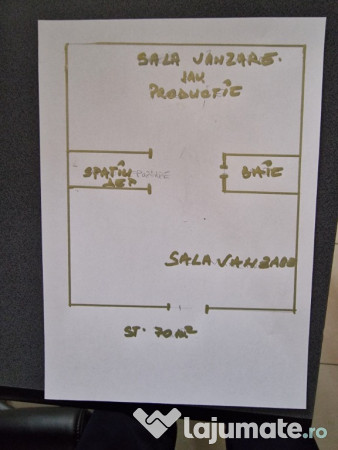 SALA VANZARE.
SAU
PRODUCTIE
SPATIU
DEP
BAIE
SALA VANZARE
ST. 70 m²
lajumate.ro